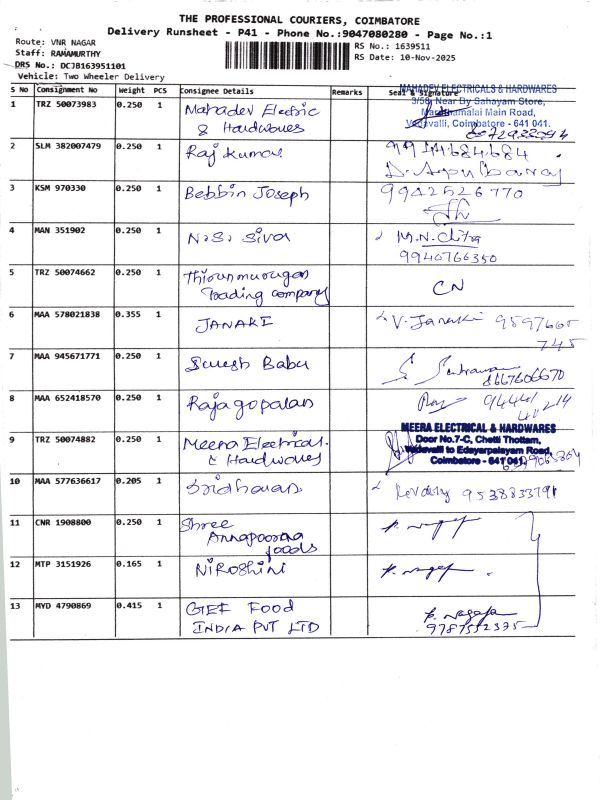 THE PROFESSIONAL COURIERS, COIMBATORE
Delivery Runsheet - P41 - Phone No.:9047080280 - Page No.:1
Route: VNR NAGAR
RS No.: 1639511
Staff: RAMAMURTHY
RS Date: 10-Nov-2025
DRS No.: DCJB163951101
Vehicle: Two Wheeler Delivery
S No Consignment No Weight PCS Consignee Details Remarks Seal & Signature
MAHADEV ELECTRICALS & HARDWARES
3/56, Near By Sahayam Store,
Maruthamalai Main Road,
Vadavalli, Coimbatore - 641 041.
1 TRZ 50073983 0.250 1 Mahadev Electric
& Hardwares
2 SLM 382007479 0.250 1 Raj kumar 9914684684
3 KSM 970330 0.250 1 Bebbin Joseph 9942526770
4 MAN 351902 0.250 1 N.S. Siva M.N. Chitra
9940766350
5 TRZ 50074662 0.250 1 Thirumurugan
Trading company CN
6 MAA 578021838 0.355 1 JANAKI V. Janaki 9597665
745
7 MAA 945671771 0.250 1 Suresh Babu
8667606670
8 MAA 652418570 0.250 1 Rajagopalan
MEERA ELECTRICAL & HARDWARES
Door No.7-C, Chetti Thottam,
Vadavalli to Edayarpalayam Road,
Coimbatore - 641 041.
9 TRZ 50074882 0.250 1 Meera Electrical
& Hardwares
10 MAA 577636617 0.205 1 Sridharan 9538833791
11 CNR 1908800 0.250 1 Shree
Annapoorna
foods
12 MTP 3151926 0.165 1 NIROSHINI
13 MYD 4790869 0.415 1 GIEF Food
INDIA PVT LTD
9787552335